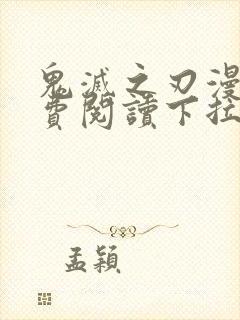 鬼滅之刃漫
費閱讀下拉
孟穎